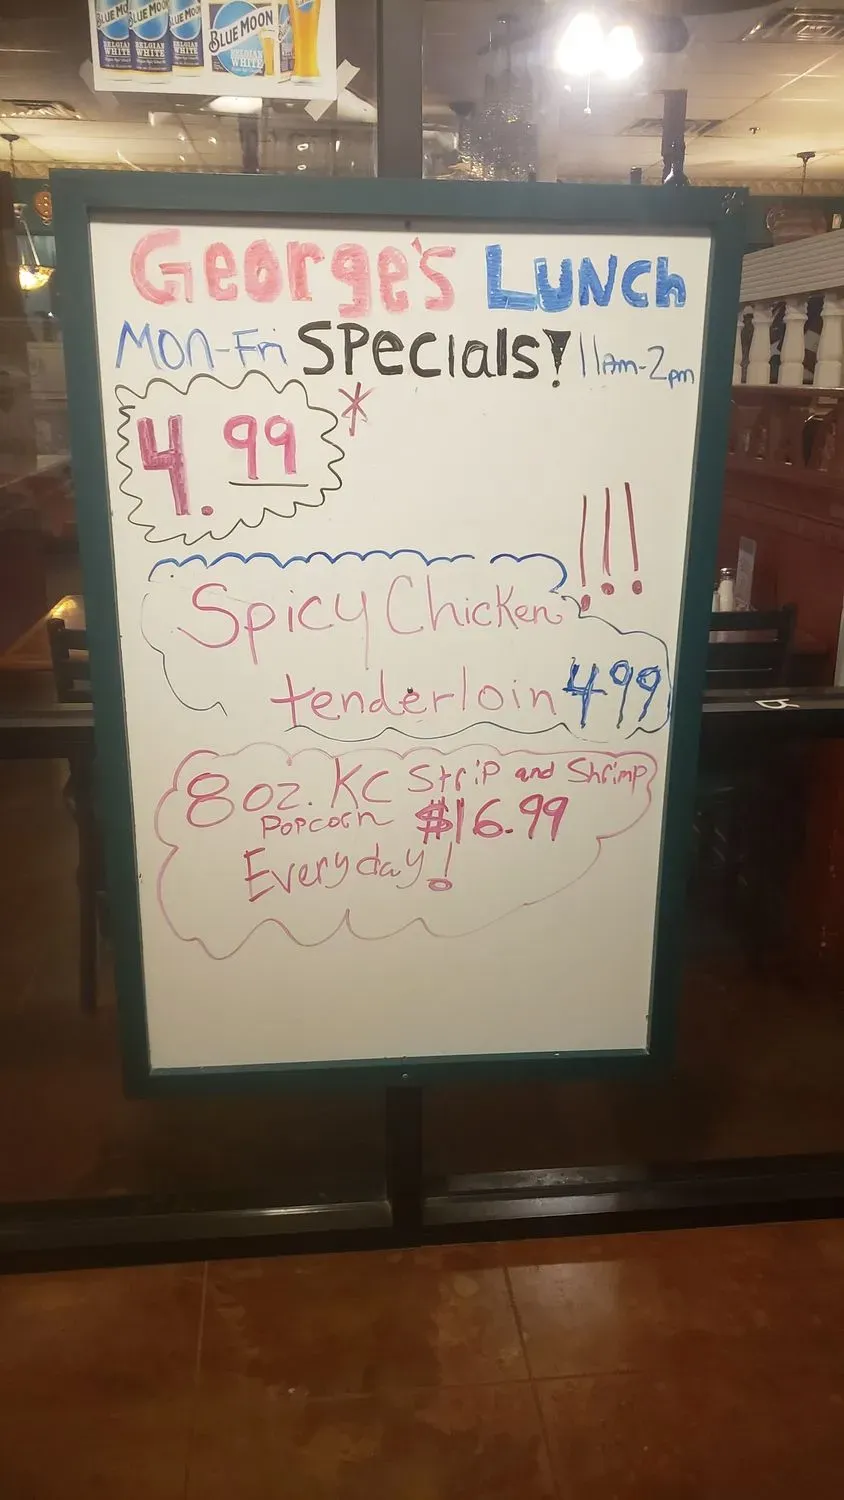 BLUE MOON BLUE MOON BLUE MOON BLUE MOON
BELGIAN WHITE BELGIAN WHITE BELGIAN WHITE BELGIAN WHITE
George's Lunch
Mon-Fri Specials! 11am-2pm
4.99*
!!!
Spicy Chicken
tenderloin 499
8oz. KC Strip and Shrimp
Popcorn $16.99
Everyday!